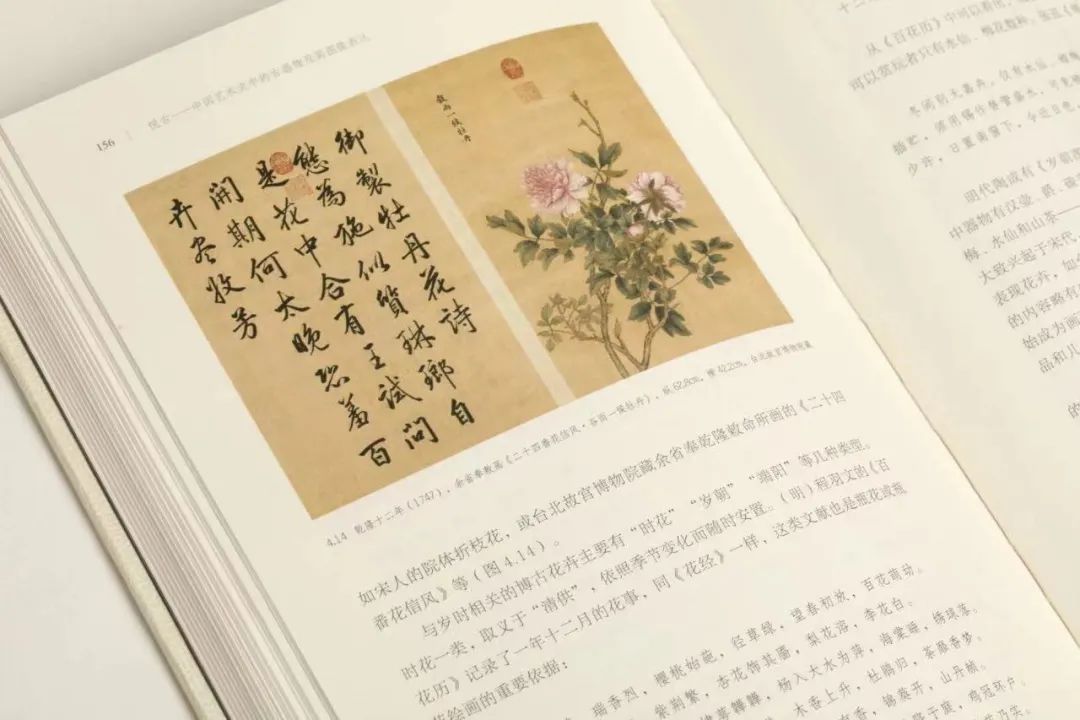 156 | 悦古——中国艺术史中的古器物及其图像表达
御製牡丹花詩
態為施似質琳瑯自
是花中合有王試問
開期何太晚恐羞百
卉盡收芳
穀雨一候牡丹
4.14 乾隆十二年（1747），余省奉敕画《二十四番花信风·谷雨一候牡丹》，纵62.8cm，横42.2cm，台北故宫博物院藏
如宋人的院体折枝花，或台北故宫博物院藏余省奉乾隆敕命所画的《二十四
番花信风》等（图4.14）。
与岁时相关的博古花卉主要有“时花”“岁朝”“端阳”等几种类型。
时花一类，取义于“清供”，依照季节变化而随时安置。（明）程羽文的《百
花历》记录了一年十二月的花事，同《花经》一样，这类文献也是瓶花或瓶
花绘画的重要依据：
瑞香烈，樱桃始葩，径草绿，望春初放，百花萌动。
紫荆繁，杏花饰其靥，梨花溶，李花白。
杨入大水为萍，海棠睡，绣球落。
木香上升，杜鹃归，荼蘼香梦。
香，锦葵开，山丹赪。
鸡冠环户
从《百花历》中可以看出，
可以赏玩者只有水仙、梅花数种。
冬间别无嘉卉，仅有水仙、蜡梅
插贮，须用锡作替管盛水，可免
少许，日置南窗下，令近日色，
明代陶成有《岁朝图
中器物有汉壶、爵、
梅、水仙和山茶——
大致兴起于宋代，
表现花卉，如
的内容略有
始成为画
品和儿
的